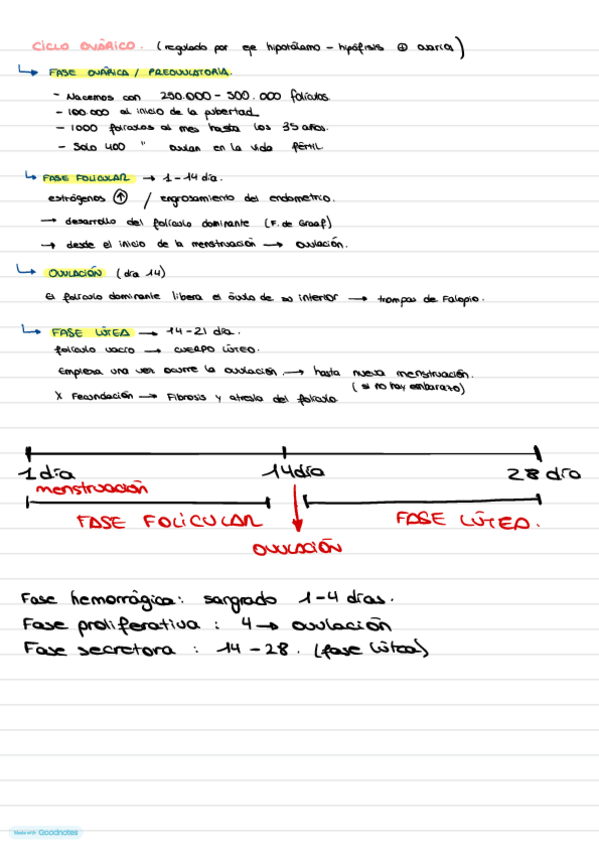 CICLO OVÁRICO. (regulado por eje hipotálamo - hipófisis ⊕ ovario)
↳ FASE OVÁRICA / PREOVULATORIA.
- Nacemos con 250.000 - 500.000 folículos.
- 100.000 al inicio de la pubertad
- 1000 folículos al mes hasta los 35 años.
- Solo 400 " ovulan en la vida fértil.
↳ FASE FOLICULAR → 1 - 14 día.
estrógenos ↑ / engrosamiento del endometrio.
→ desarrollo del folículo dominante (F. de Graaf)
→ desde el inicio de la menstruación → ovulación.
↳ OVULACIÓN (día 14)
El folículo dominante libera el óvulo de su interior → trompas de Falopio.
↳ FASE LÚTEA → 14 - 21 día.
folículo vacío → CUERPO LÚTEO.
Empieza una vez ocurre la ovulación → hasta nueva menstruación.
(si no hay embarazo)
X Fecundación → Fibrosis y atresia del folículo
1 día 14 día 28 día
menstruación
FASE FOLICULAR FASE LÚTEA.
OVULACIÓN
Fase hemorrágica: sangrado 1-4 días.
Fase proliferativa : 4 → ovulación
Fase secretora : 14 - 28. (fase lútea)
Made with Goodnotes